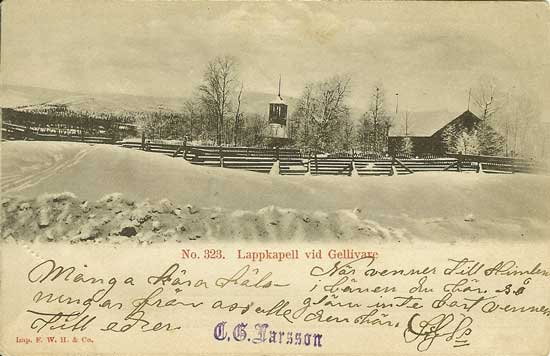 No. 323. Lappkapell vid Gellivare
Många kära häls
ningar från oss alle
till eder
När venner till Himlen
i bönen du bär. så
glöm inte bort vennen
den här.
C. G. Larsson
Imp. F. W. H. & Co.